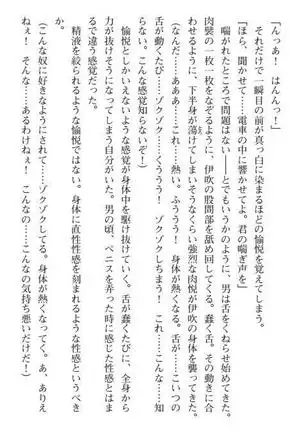 「んっあ！　はんんっ！」
それだけで一瞬目の前が真っ白に染まるほどの愉悦を覚えてしまう。
「ほら、聞かせて……電車の中に響かせてよ。君の喘ぎ声を」
喘がれたところで問題はない――とでもいうかのように、男は舌をくねらせ始めてきた。
肉襞の一枚一枚をなぞるように、伊吹の股間部を舐め回してくる。蠢く舌。その動きに合
わせるように、下半身が蕩けてしまいそうなくらい心地いい肉悦が伊吹の身体を襲ってきた。
（なんだ……あああ……これ……熱い。ふううう！　身体が熱くなる。舌が……こいつの
舌が動くたび……ゾクゾク……くううう！　ゾクゾクしちまう！　これ……こんな……知
らない。こんな感覚知らないぞ！）
愉悦としかいえないような感覚が身体中を駆け抜けていく。舌が蠢くたびに、全身から
力が抜けそうになってしまう自分がいた。男の頃、ペニスを弄った時に感じたものとはま
るで違う感覚だった。
精液を絞られるような愉悦ではない。身体に直性性感を刻まれるような性感というべき
（こんな奴に好きなようにされて……ゾクゾクしてる。身体が熱くなってく。あ、ありえ
ねぇ！　そんな……あるわけねぇ！　こんなの……こんなの気持ち悪いだけだ！）